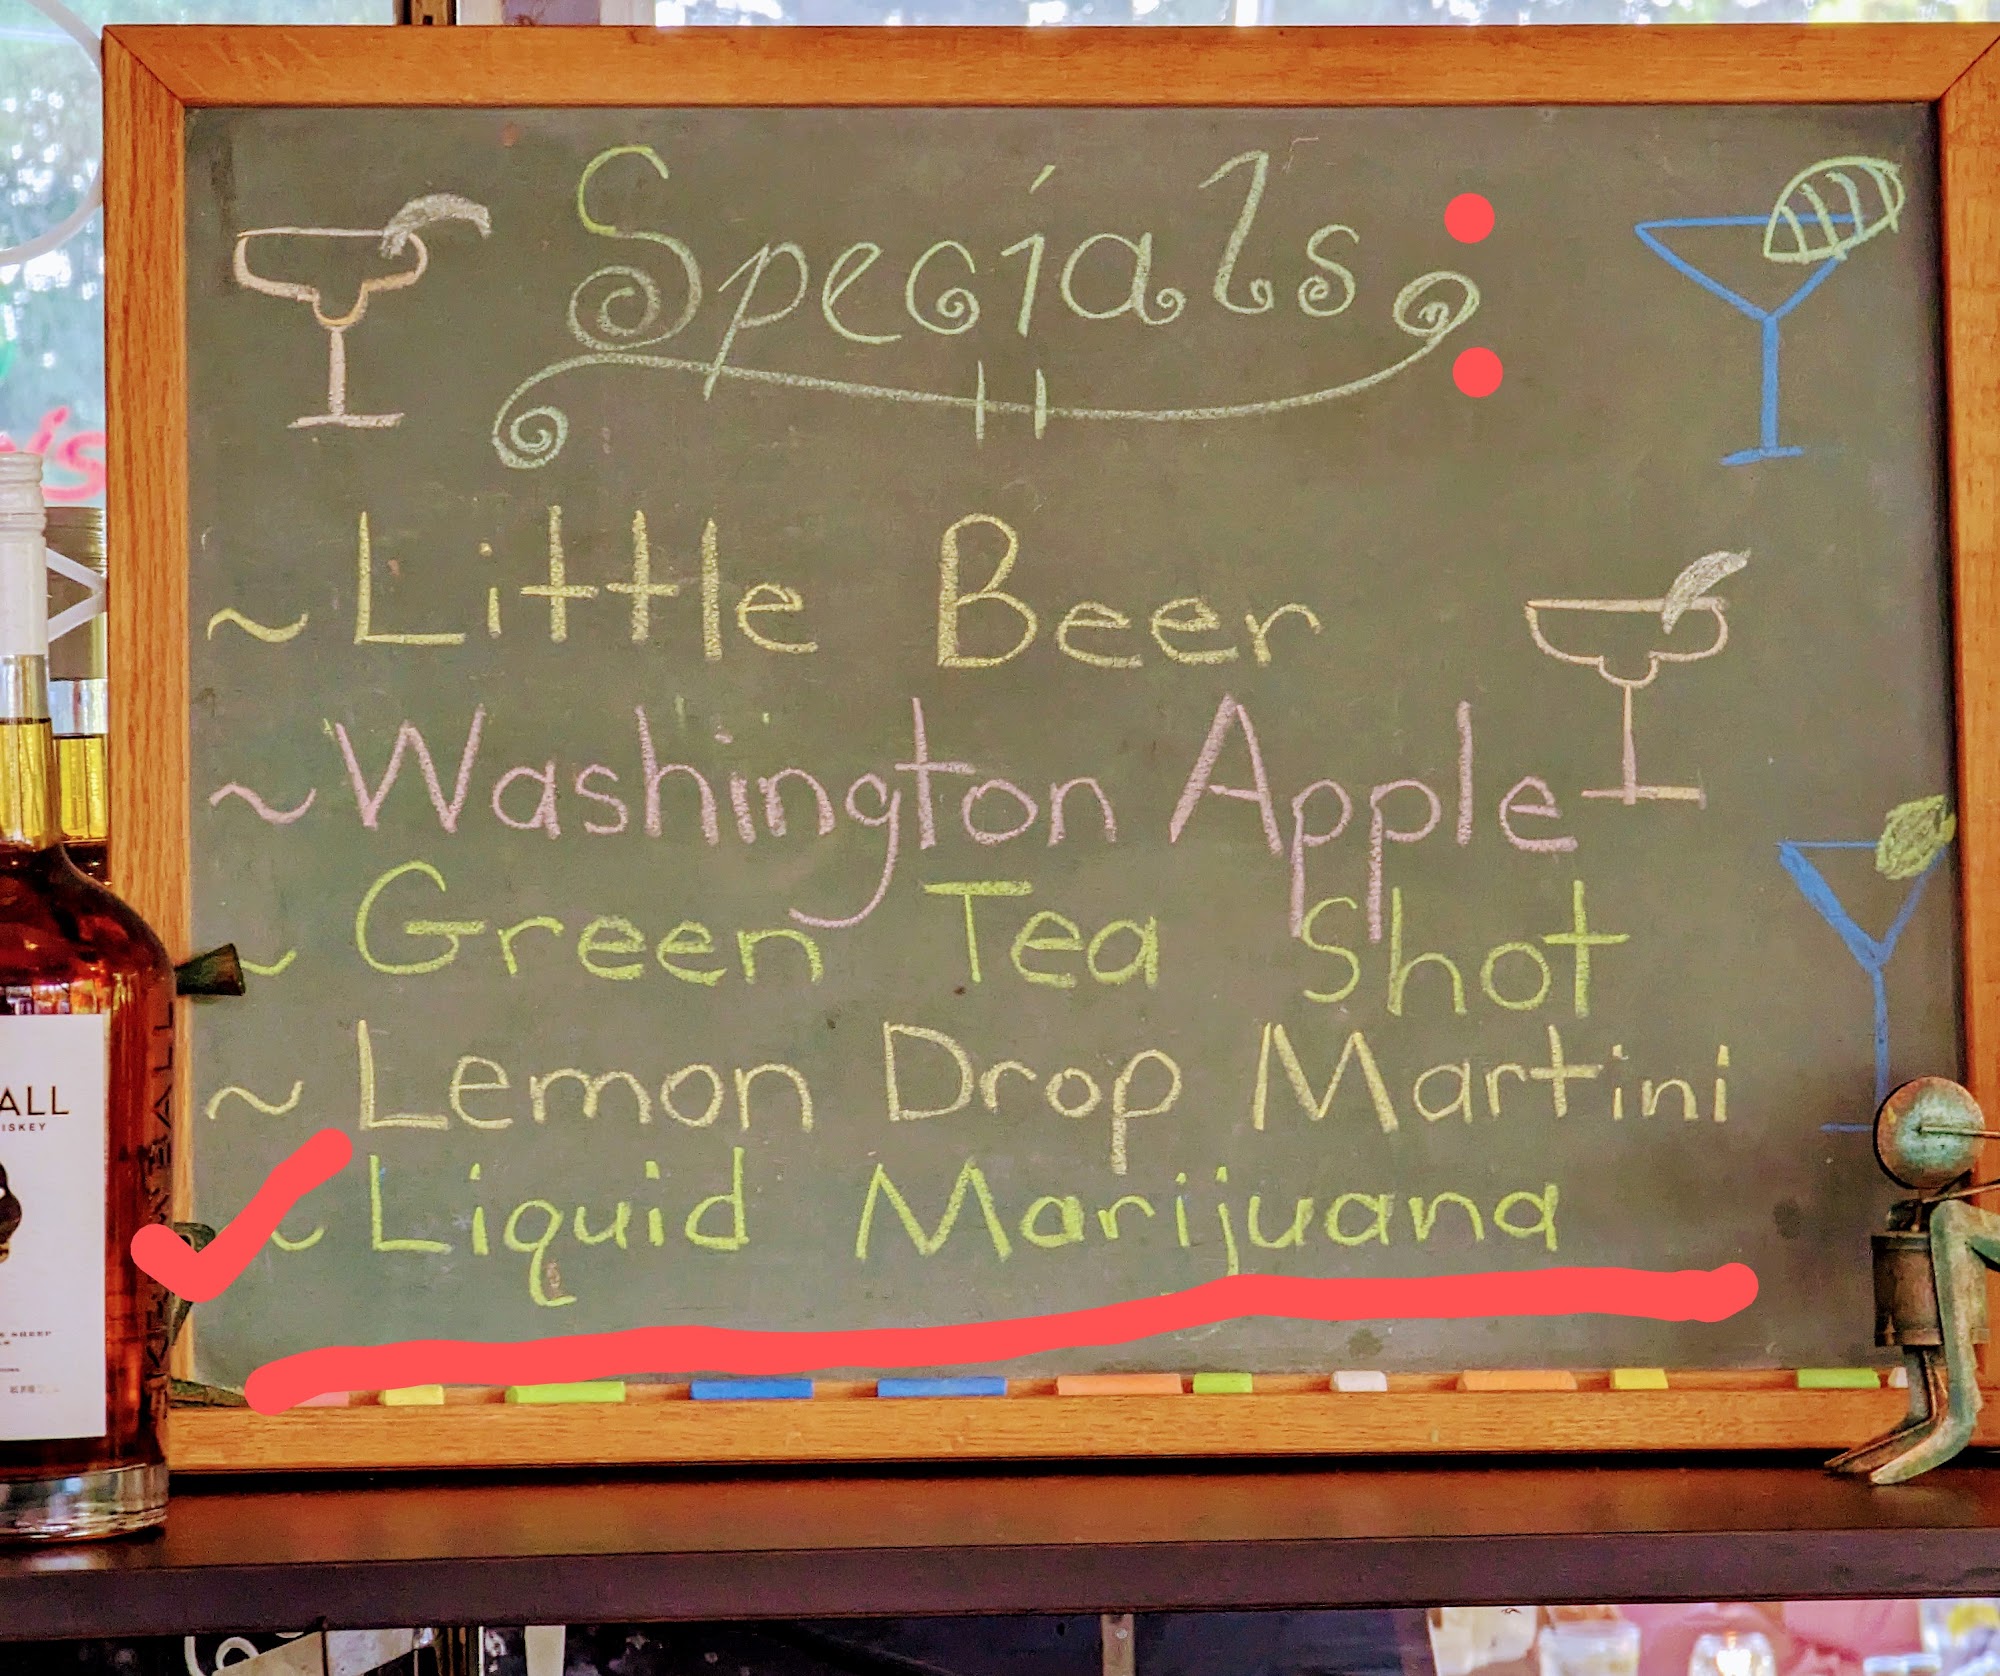 Specials:
~ Little Beer
~ Washington Apple
~ Green Tea Shot
~ Lemon Drop Martini
~ Liquid Marijuana
ALL